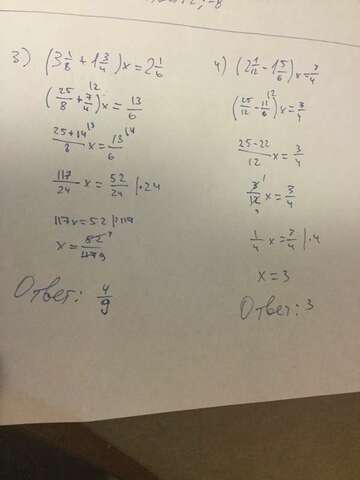 3) (3 1/8 + 1 3/4)x = 2 1/6
(25/8 + 7/4)x = 13/6
(25+14)/8 x = 13/6
117/24 x = 52/24 |·24
117x = 52
x =
Ответ: 4/9
4) (2 1/12 - 1 5/6)x = 3/4
(25/12 - 11/6)x = 3/4
(25-22)/12 x = 3/4
3/12 x = 3/4
1/4 x = 3/4 |·4
x = 3
Ответ: 3